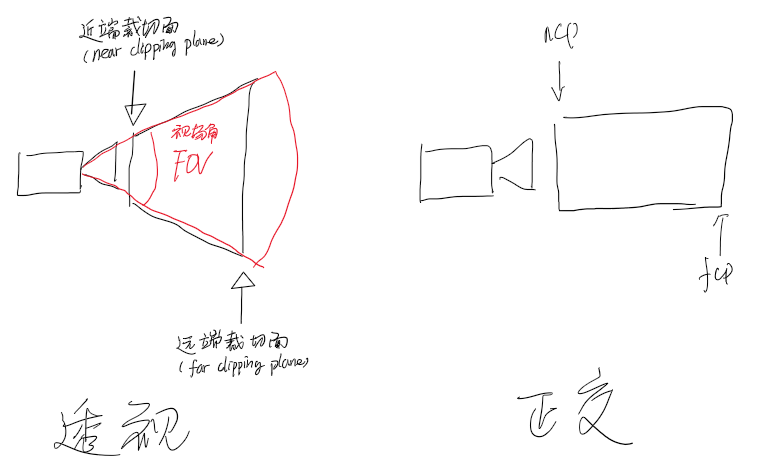 近端裁切面
(near clipping plane)
视场角
FOV
远端裁切面
(far clipping plane)
透视
ncp
fcp
正交